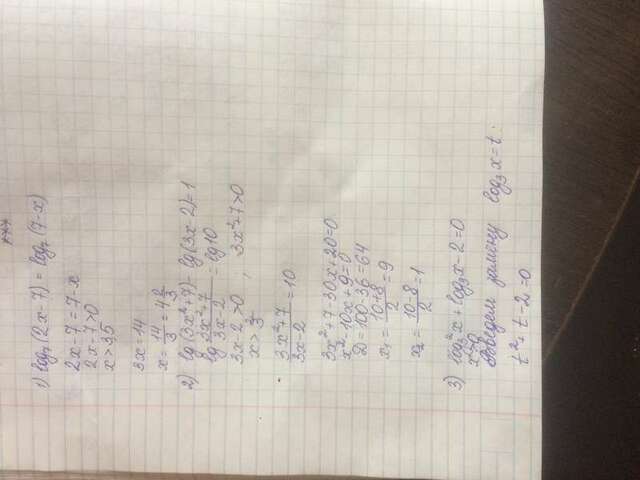 1) log₇(2x-7) = log₇(7-x)
2x-7=7-x
2x-7>0
x>3,5
3x=14
x=14/3=4 2/3
2) lg(3x²+7)-lg(3x-2)=1
lg (3x²+7)/(3x-2) = lg10
3x-2>0, 3x²+7>0
x>2/3
(3x²+7)/(3x-2)=10
3x²+7-30x+20=0
x²-10x+9=0
D=100-36=64
x₁=(10+8)/2=9
x₂=(10-8)/2=1
3) log₃²x+log₃x-2=0
x>0
Введем замену log₃x=t.
t²+t-2=0